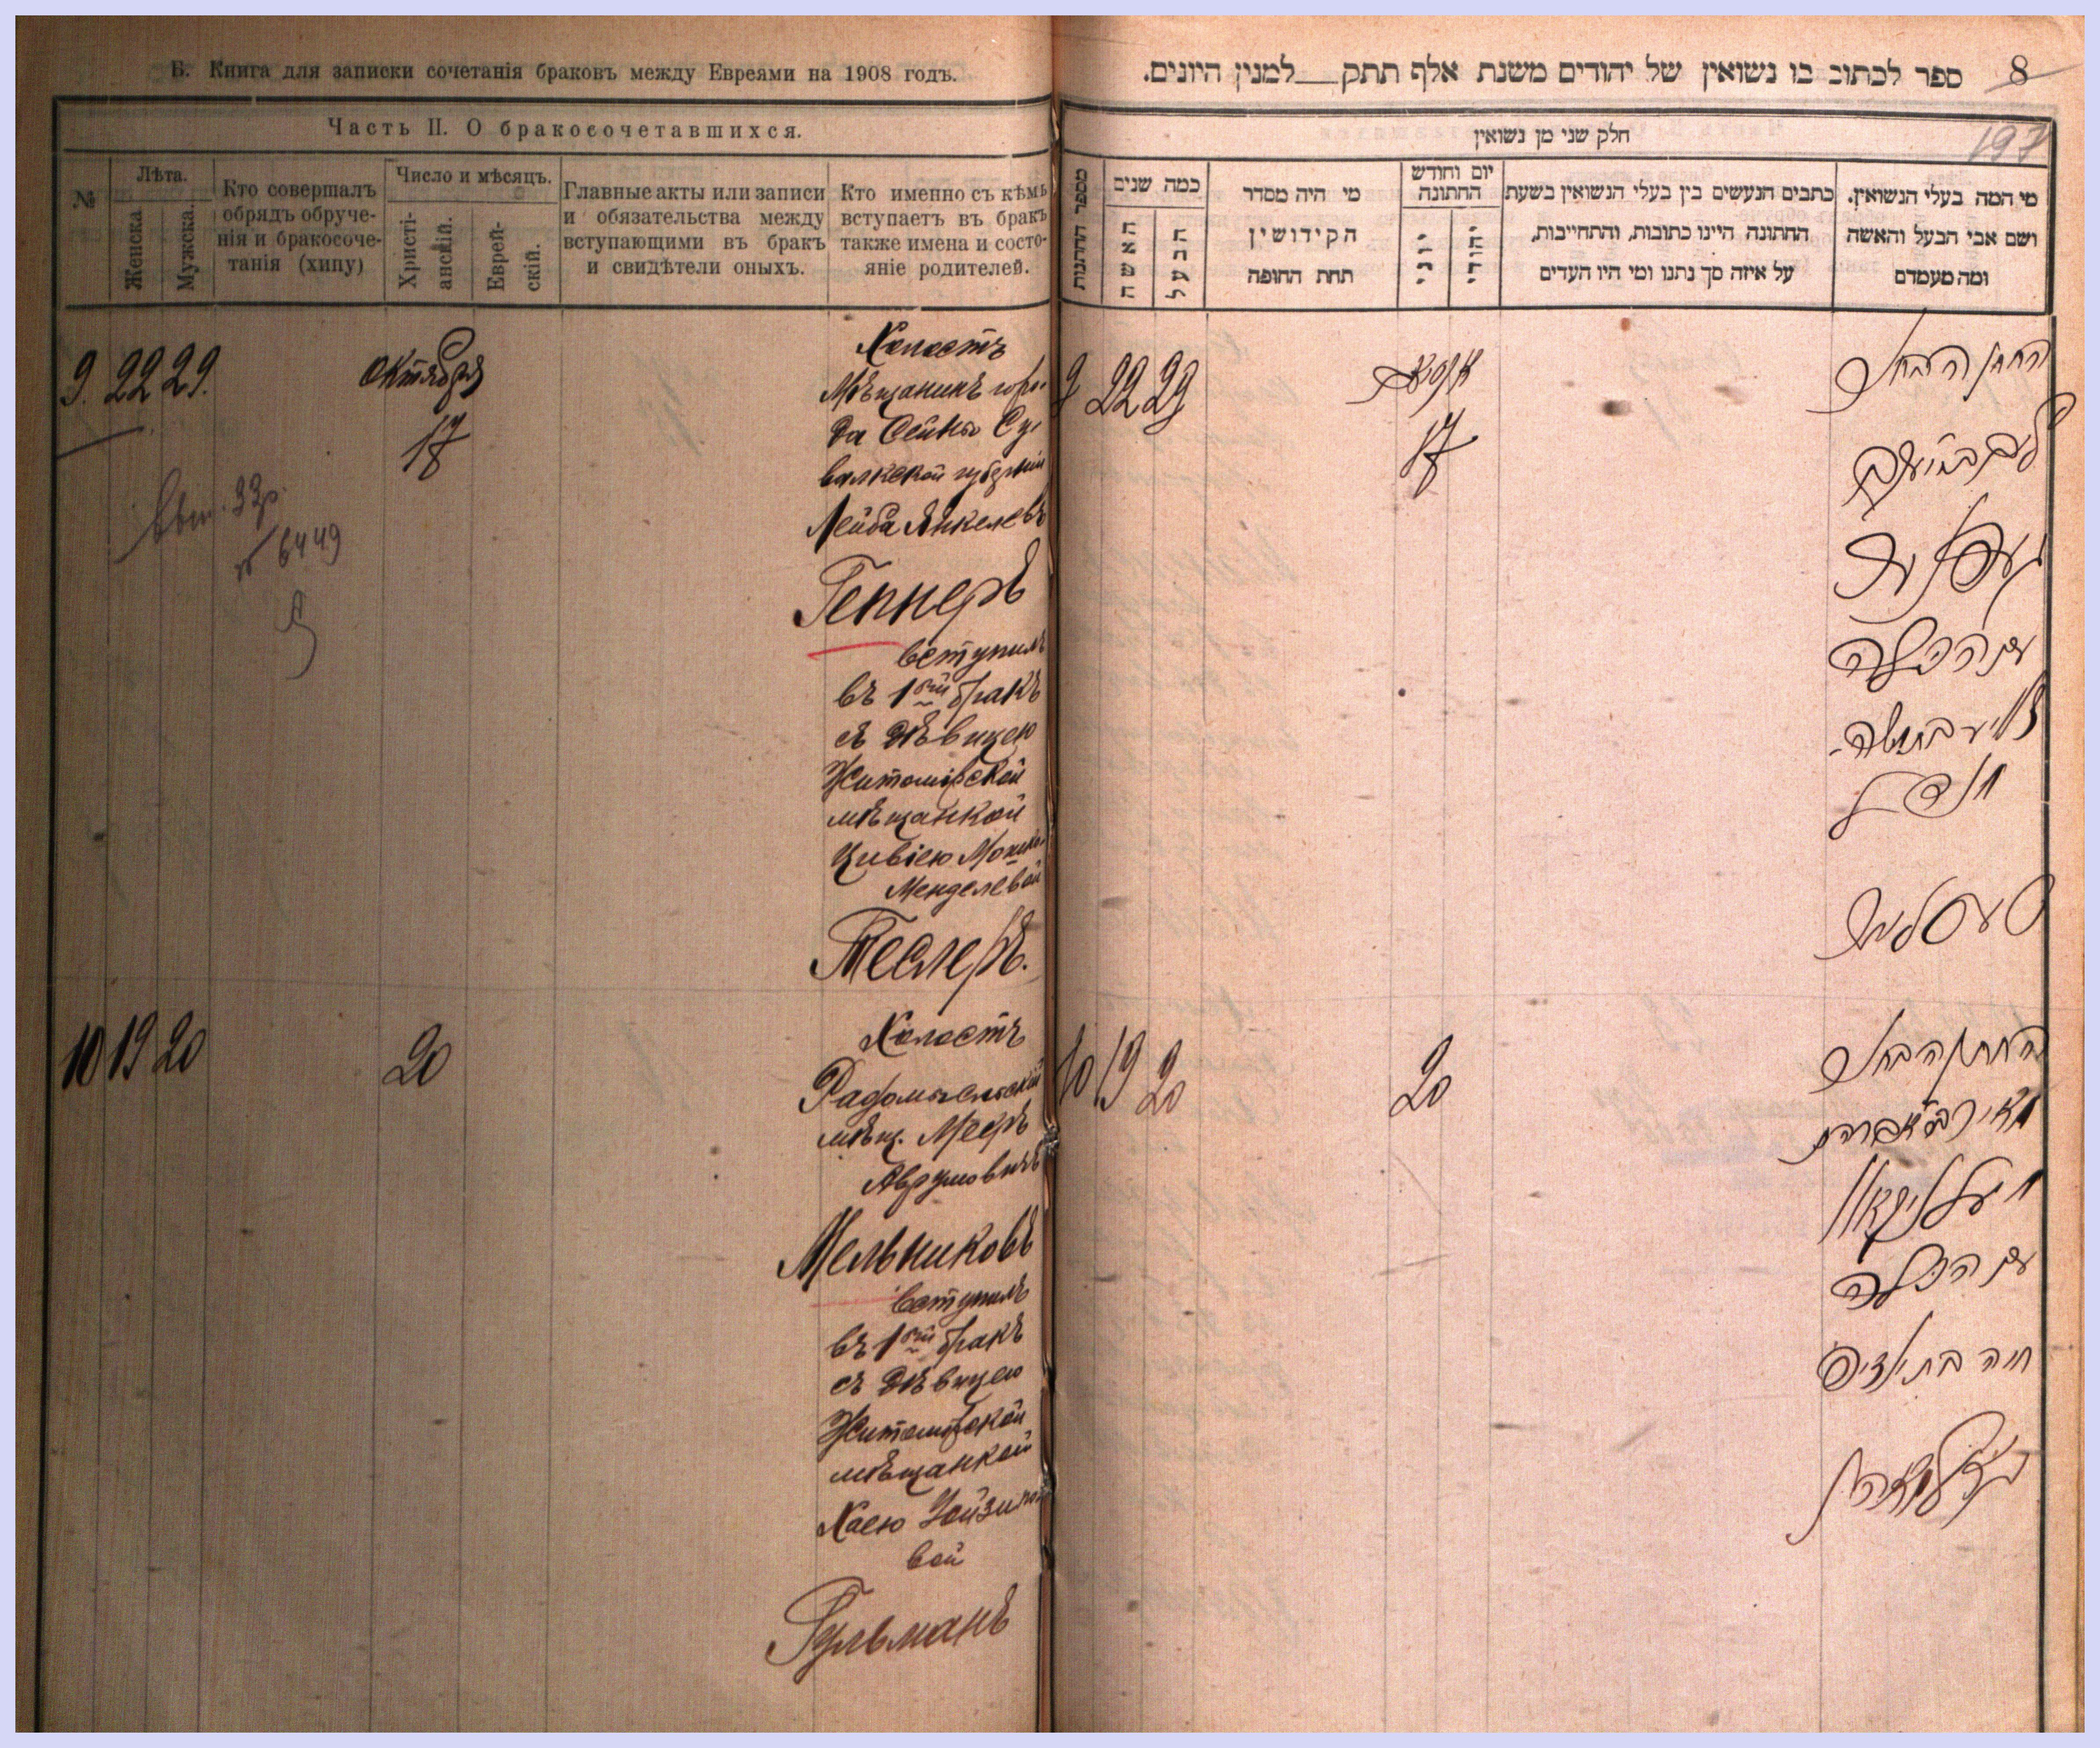 Б. Книга для записки сочетанія браковъ между Евреями на 1908 годъ.
Часть II. О бракосочетавшихся.
№
Лѣта.
Женска
Мужска.
Кто совершалъ
обрядъ обруче-
нія и бракосоче-
танія (хипу)
Число и мѣсяцъ.
Христі-
анскій.
Еврей-
скій.
Главные акты или записи
и обязательства между
вступающими въ бракъ
и свидѣтели оныхъ.
Кто именно съ кѣмъ
вступаетъ въ бракъ
также имена и состо-
яніе родителей.
9. 22 29. Октября
17
6449
Холостъ
Мѣщанинъ горо-
да Сейны Су
валкской губерніи
Лейба Янкелевъ
Геннеръ
вступилъ
въ 1ый бракъ
съ дѣвицею
Житомірской
мѣщанкой
Цивіею Мошко-
Менделевой
Теслеръ.
10 19 20 20
Холостъ
Радомысльскій
мѣщ. Мееръ
Аврумовичъ
Мельниковъ
вступилъ
въ 1ый бракъ
съ дѣвицею
Житомірской
мѣщанкой
Хаею Зойзило
вой
Гульманъ
ספר לכתוב בו נשואין של יהודים משנת אלף תתק__למנין היונים.
8
197
חלק שני מן נשואין
מי המה בעלי הנשואין.
ושם אבי הבעל והאשה
ומה מעמדם
כתבים הנעשים בין בעלי הנשואין בשעת
החתונה היינו כתובות, והתחייבות,
על איזה סך נתנו ומי היו העדים
יום וחודש
החתונה
יהודי
יוני
מי היה מסדר
הקידושין
תחת החופה
כמה שנים
הבעל
האשה
מספר החתנות
9 22 29
17
החתן הבחור
עם הכלה
צביא בת משה
מענדל
טעסלער
10 19 20 20
החתן הבחור
מאיר ב"ר אברהם
מעלניקאוו
עם הכלה
חיה בת